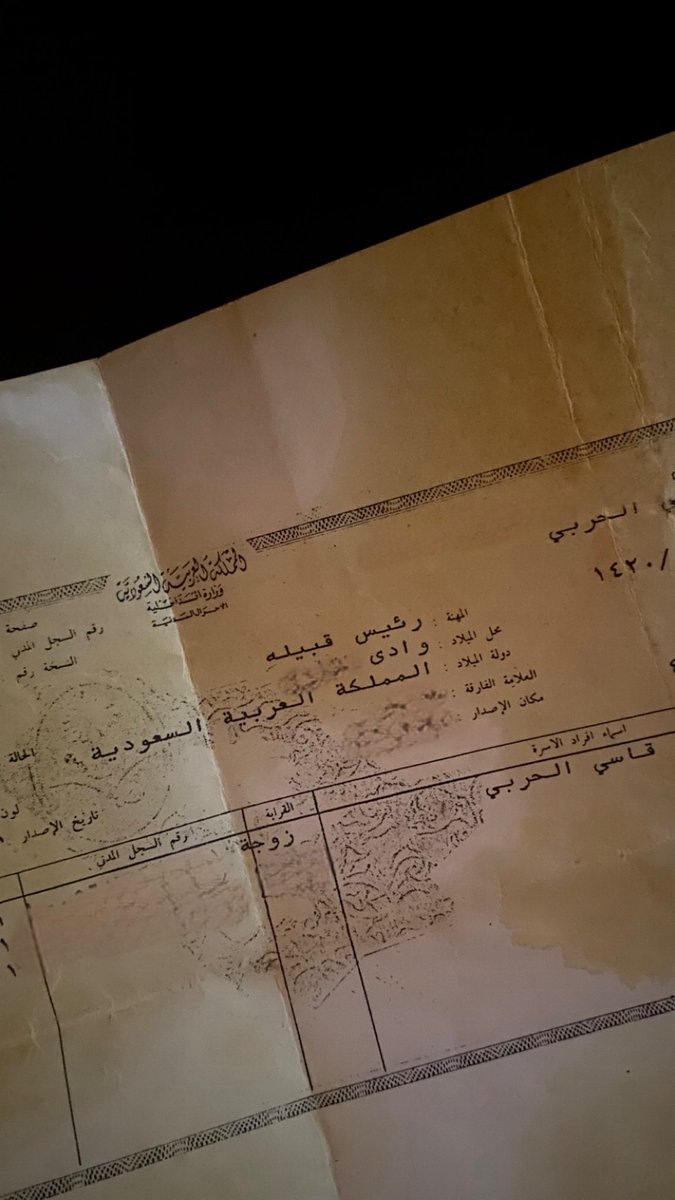 الحربي
١٤٢٠/
المملكة العربية السعودية
وزارة الداخلية
الأحوال المدنية
صفحة
رقم السجل المدني
النسخة رقم
المهنة : رئيس قبيله
محل الميلاد : وادى
دولة الميلاد : المملكة العربية السعودية
العلامة الفارقة :
مكان الإصدار :
الحالة
لون
تاريخ الإصدار
اسماء افراد الأسرة
القرابة
رقم السجل المدني
قاسي الحربي
زوجة